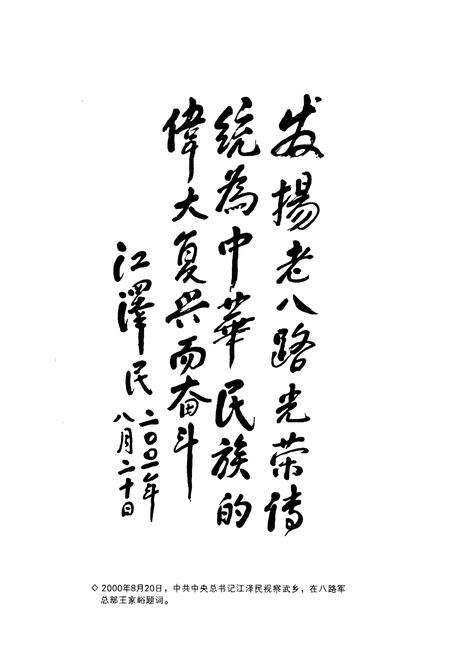 发揚老八路光荣传
统為中華民族的
偉大复兴而奋斗
江澤民
二〇〇〇年
八月二十日
◇ 2000年8月20日，中共中央总书记江泽民视察武乡，在八路军
总部王家峪题词。